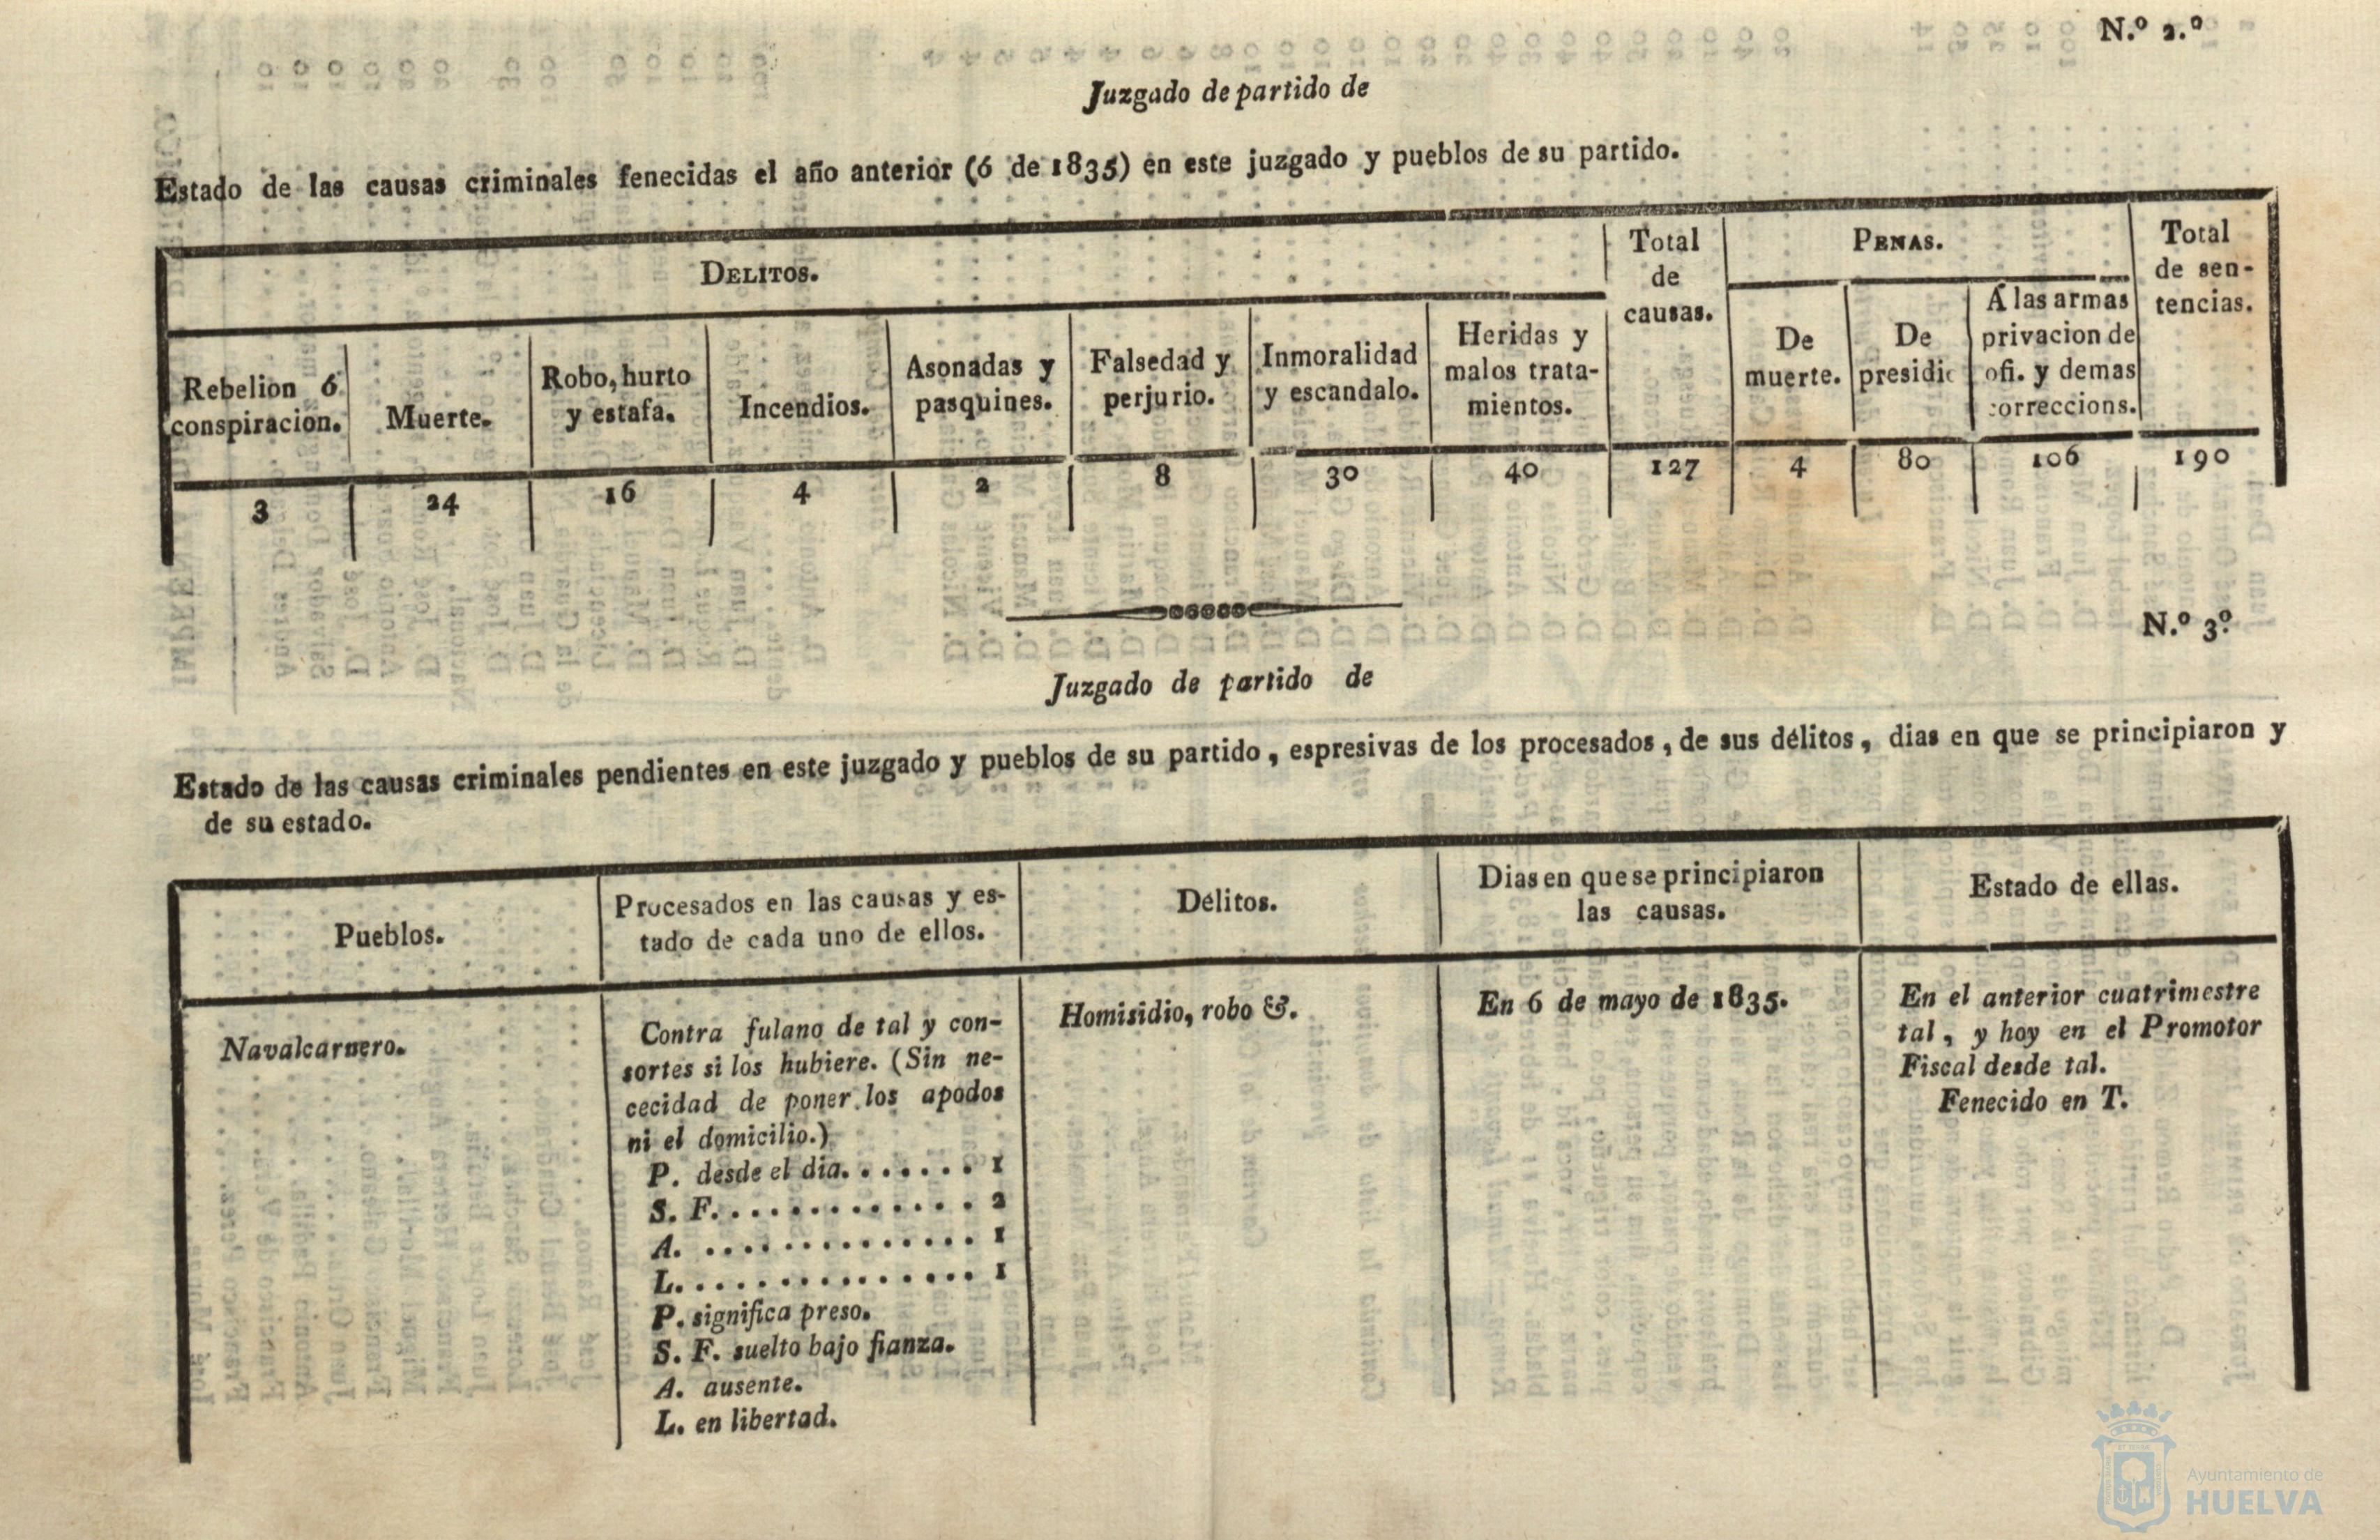 N.º 2.º
Juzgado de partido de
Estado de las causas criminales fenecidas el año anterior (ó de 1835) en este juzgado y pueblos de su partido.
DELITOS.
Total
de
causas.
PENAS.
Total
de sen-
tencias.
Rebelion ó
conspiracion.
Muerte.
Robo, hurto
y estafa.
Incendios.
Asonadas y
pasquines.
Falsedad y
perjurio.
Inmoralidad
y escandalo.
Heridas y
malos trata-
mientos.
De
muerte.
De
presidio
Á las armas
privacion de
ofi. y demas
correccions.
3
24
16
4
2
8
30
40
127
4
80
106
190
N.º 3.º
Juzgado de partido de
Estado de las causas criminales pendientes en este juzgado y pueblos de su partido, espresivas de los procesados, de sus délitos, dias en que se principiaron y
de su estado.
Pueblos.
Procesados en las causas y es-
tado de cada uno de ellos.
Délitos.
Dias en que se principiaron
las causas.
Estado de ellas.
Navalcarnero.
Contra fulano de tal y con-
sortes si los hubiere. (Sin ne-
cecidad de poner los apodos
ni el domicilio.)
P. desde el dia. . . . . . . 1
S. F. . . . . . . . . . . . . 2
A. . . . . . . . . . . . . . . 1
L. . . . . . . . . . . . . . . 1
P. significa preso.
S. F. suelto bajo fianza.
A. ausente.
L. en libertad.
Homisidio, robo &.
En 6 de mayo de 1835.
En el anterior cuatrimestre
tal, y hoy en el Promotor
Fiscal desde tal.
Fenecido en T.
Ayuntamiento de
HUELVA